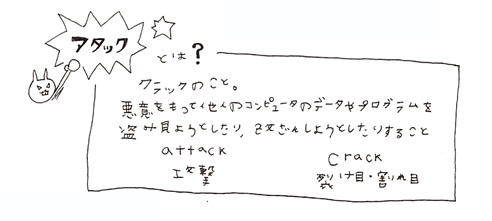 アタック
とは?
クラックのこと。
悪意をもって他人のコンピュータのデータやプログラムを
盗み見ようとしたり、改ざんしようとしたりすること
attack
攻撃
crack
裂け目・割れ目